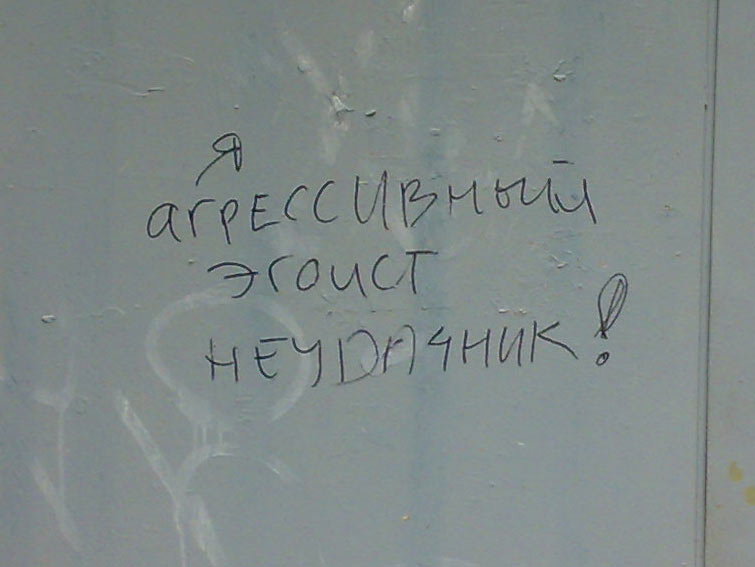 Я
агРЕССИВНЫЙ
ЭГОИСТ
НЕУДАЧНИК!